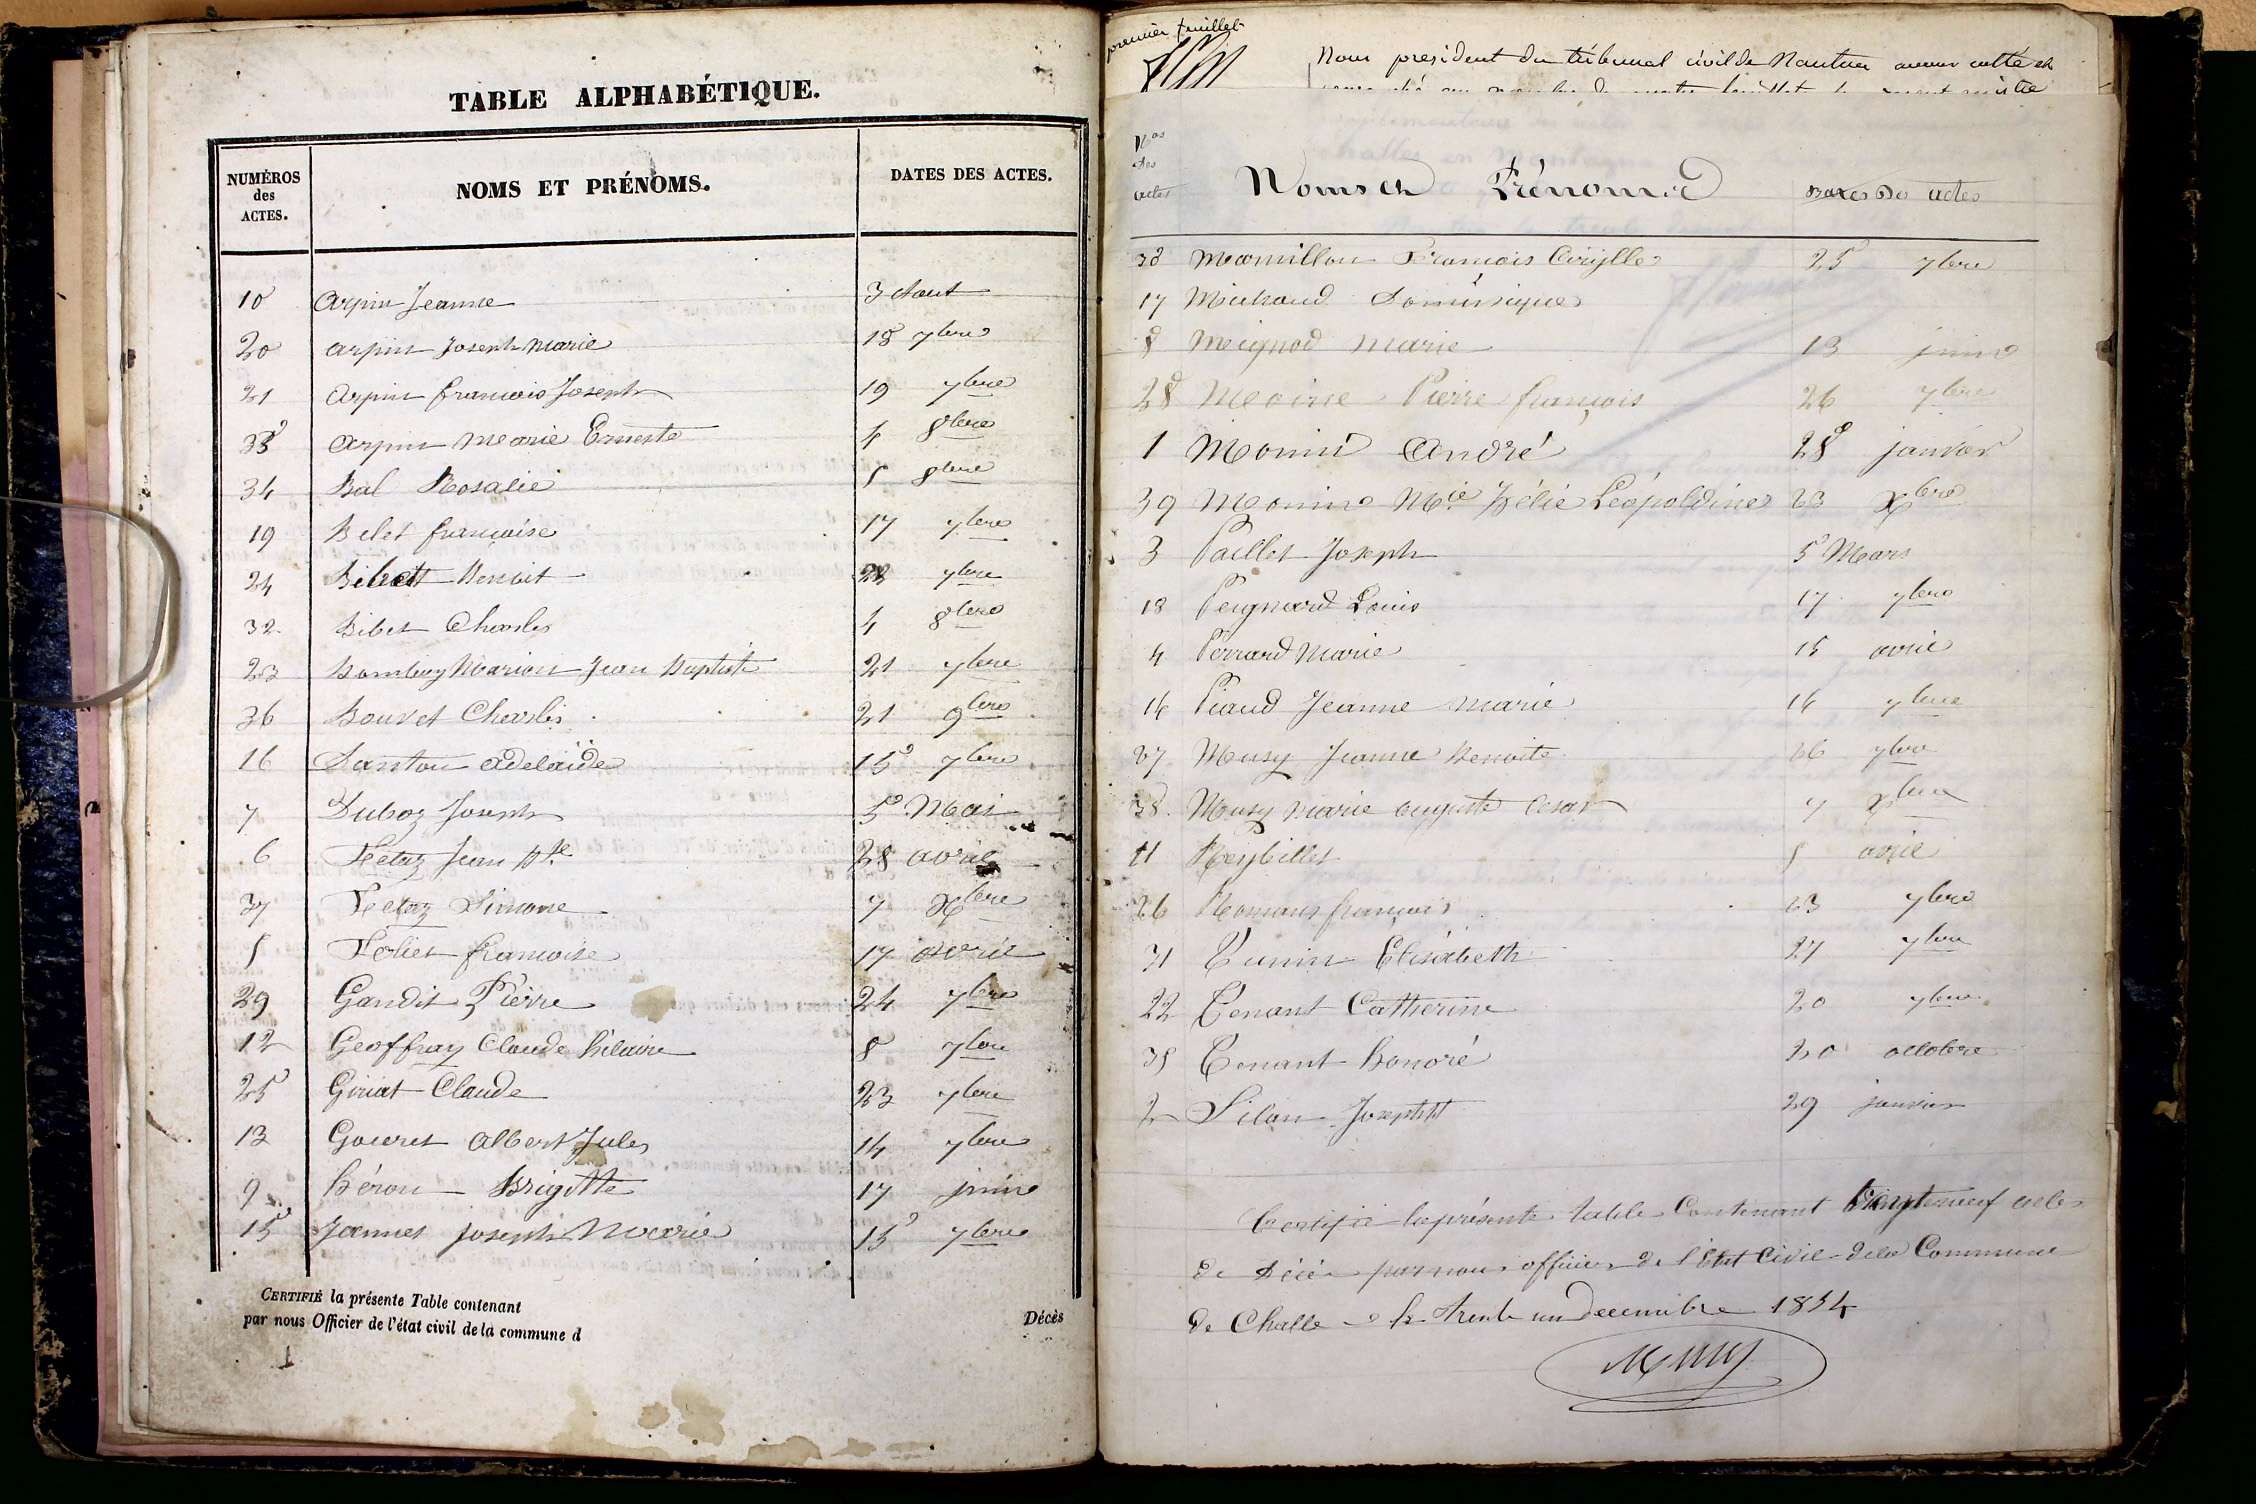 TABLE ALPHABÉTIQUE.
NUMÉROS des ACTES. NOMS ET PRÉNOMS. DATES DES ACTES.
10 Arpin Jeanne 3 Aout
20 Arpin Joseph Marie 18 7bre
21 Arpin François Joseph 19 7bre
33 Arpin Marie Erneste 4 8bre
34 Bal Rosalie 5 8bre
19 Bilet françoise 17 7bre
24 Benoit 7bre
32 Bibet Charles 4 8bre
23 Marion Jean Baptiste 21 7bre
36 Bouvet Charles 21 9bre
16 Danton Adelaïde 15 7bre
7 Duboz Joseph 5 Mai
6 Fétaz Jean Bte 28 avril
37 Fétaz Simone 7 Xbre
5 Foliet françoise 17 avril
29 Gandit Pierre 24 7bre
12 Geoffray Claude hilaire 8 7bre
25 Giriat Claude 23 7bre
13 Gouret Albert Jules 14 7bre
9 héron Brigitte 17 juin
15 Jannet joseph Marie 15 7bre
CERTIFIÉ la présente Table contenant Décès
par nous Officier de l'état civil de la commune d
premier feuillet
Nous président du tribunal civil de Nantua avons cotté et
Nos des actes Noms et Prénoms Dates des actes
30 Marmillon François Cirylle 25 7bre
17 Michaud Dominique
8 Meignod Marie 13 juin
28 Moine Pierre françois 26 7bre
1 Monin André 28 janvier
39 Monin Mie Zélie Léopoldine 23 Xbre
3 Paillet Joseph 5 Mars
18 Peignard Louis 17 7bre
4 Perrard Marie 15 avril
14 Piaud Jeanne Marie 14 7bre
27 Musy Jeanne Benoite 26 7bre
38. Musy Marie auguste Cesar 7 Xbre
11 Reybillet 5
26 Romans françois 23 7bre
31 Tunin Elisabeth 27 7bre
22 Tenant Catherine 20 7bre
35 Tenant honoré 20 octobre
2 Silan Joseph 29 janvier
Certifié la présente table Contenant actes
de Décès par nous officier de l'état Civil de la Commune
de Challe le trente un décembre 1854
Musy